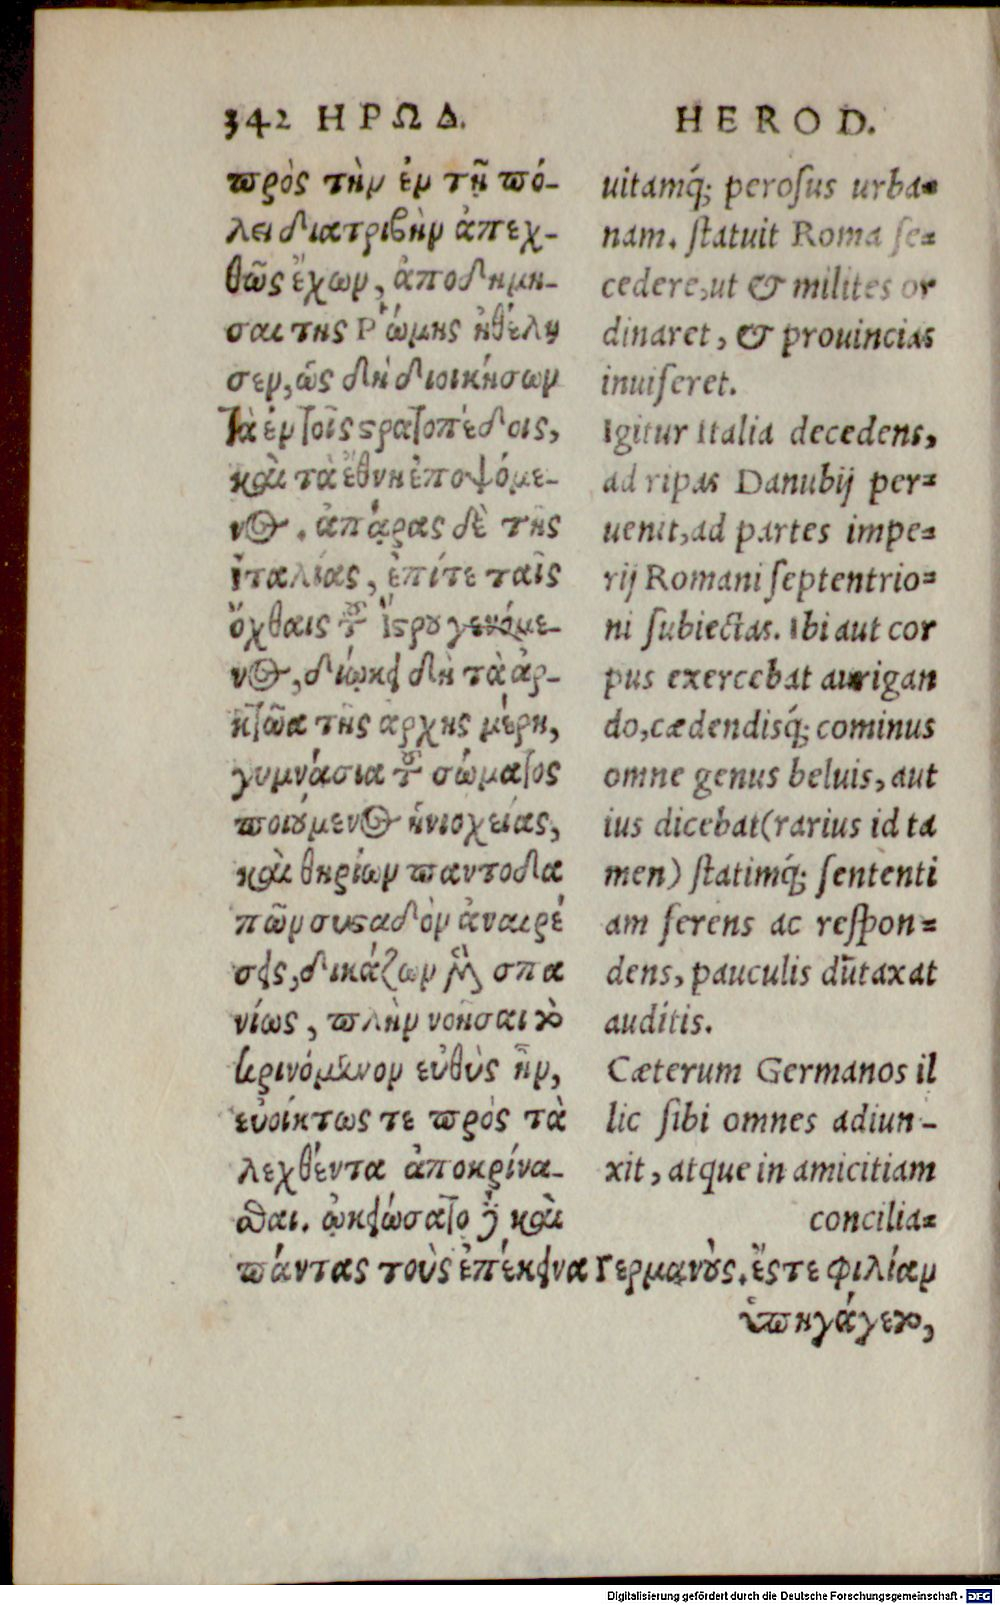 342 ΗΡΩΔ.
πρὸς τὴν ἐν τῇ πό-
λει διατριβὴν ἀπεχ-
θῶς ἔχων, ἀποδημη-
σαι της Ῥώμης ἠθέλη
σεν, ὡς δὴ διοικήσων
τὰ ἐν τοῖς στρατοπέδοις,
καὶ τὰ ἔθνη ἐποψόμε-
νος. ἀπάρας δὲ τῆς
ἰταλίας, ἐπίτε ταῖς
ὄχθαις τοῦ ἴστρου γενόμε-
νος, διώκει δὴ τὰ ἀρ-
κτῶα τῆς ἀρχης μέρη,
γυμνάσια τοῦ σώματος
ποιούμενος ἡνιοχείας,
καὶ θηρίων παντοδα
πῶν συσταδὸν ἀναιρέ
σεις, δικάζων μὲν σπα
νίως, πλὴν νοῆσαι τὸ
κρινόμενον εὐθὺς ἦν,
εὐοίκτως τε πρὸς τὰ
λεχθέντα ἀποκρίνα-
σθαι. ᾠκειώσατο δὲ καὶ
πάντας τοὺς ἐπέκεινα Γερμανούς. ἔς τε φιλίαν
ὑπηγάγετο,
HEROD.
uitamq́; perosus urba-
nam. statuit Roma se-
cedere, ut & milites or
dinaret, & prouincias
inuiseret.
Igitur Italia decedens,
ad ripas Danubij per-
uenit, ad partes impe-
rij Romani septentrio-
ni subiectas. Ibi aut cor
pus exercebat aurigan
do, cædendisq́; cominus
omne genus beluis, aut
ius dicebat (rarius id ta
men) statimq́; sententi
am ferens ac respon-
dens, pauculis dūtaxat
auditis.
Cæterum Germanos il
lic sibi omnes adiun-
xit, atque in amicitiam
concilia-
Digitalisierung gefördert durch die Deutsche Forschungsgemeinschaft - DFG